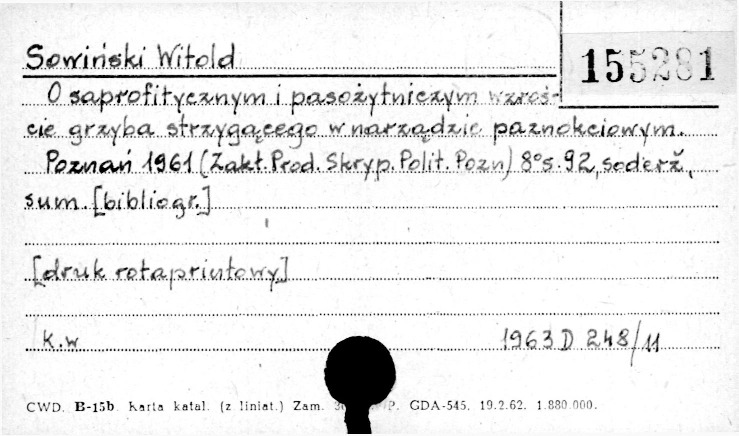 Sowiński Witold
155281
O saprofitycznym i pasożytniczym wzroś-
cie grzyba strzygącego w narządzie paznokciowym.
Poznań 1961 (Zakt. Prod. Skryp. Polit. Pozn) 8° s. 92, soderž,
sum. [bibliogr.]
[druk rotaprintowy]
k.w 1963 D 248/11
CWD. B-15b Karta katal. (z liniat.) Zam. P. GDA-545. 19.2.62. 1.880.000.